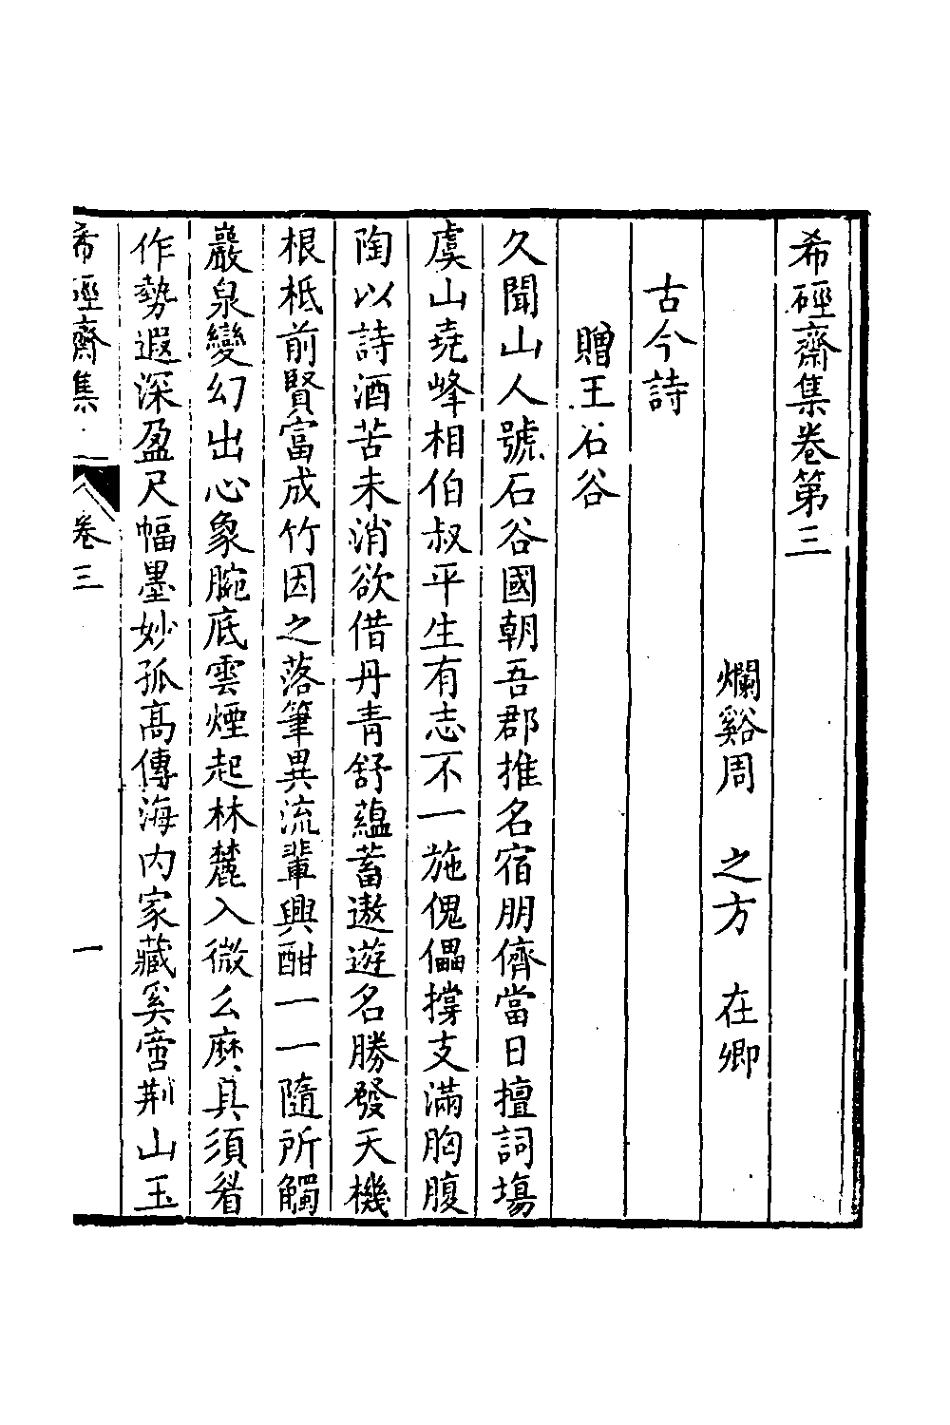 希硜齋集卷第三
爛谿周　之方　在卿
古今詩
贈王石谷
久聞山人號石谷國朝吾郡推名宿朋儕當日擅詞塲
虞山堯峰相伯叔平生有志不一施傀儡撐支滿胸腹
陶以詩酒苦未消欲借丹青舒蘊蓄遨遊名勝發天機
根柢前賢富成竹因之落筆異流輩興酣一一隨所觸
巖泉變幻出心象腕底雲煙起林麓入微么麽具須眉
作勢遐深盈尺幅墨妙孤高傳海内家藏奚啻荆山玉
希硜齋集　卷三　一